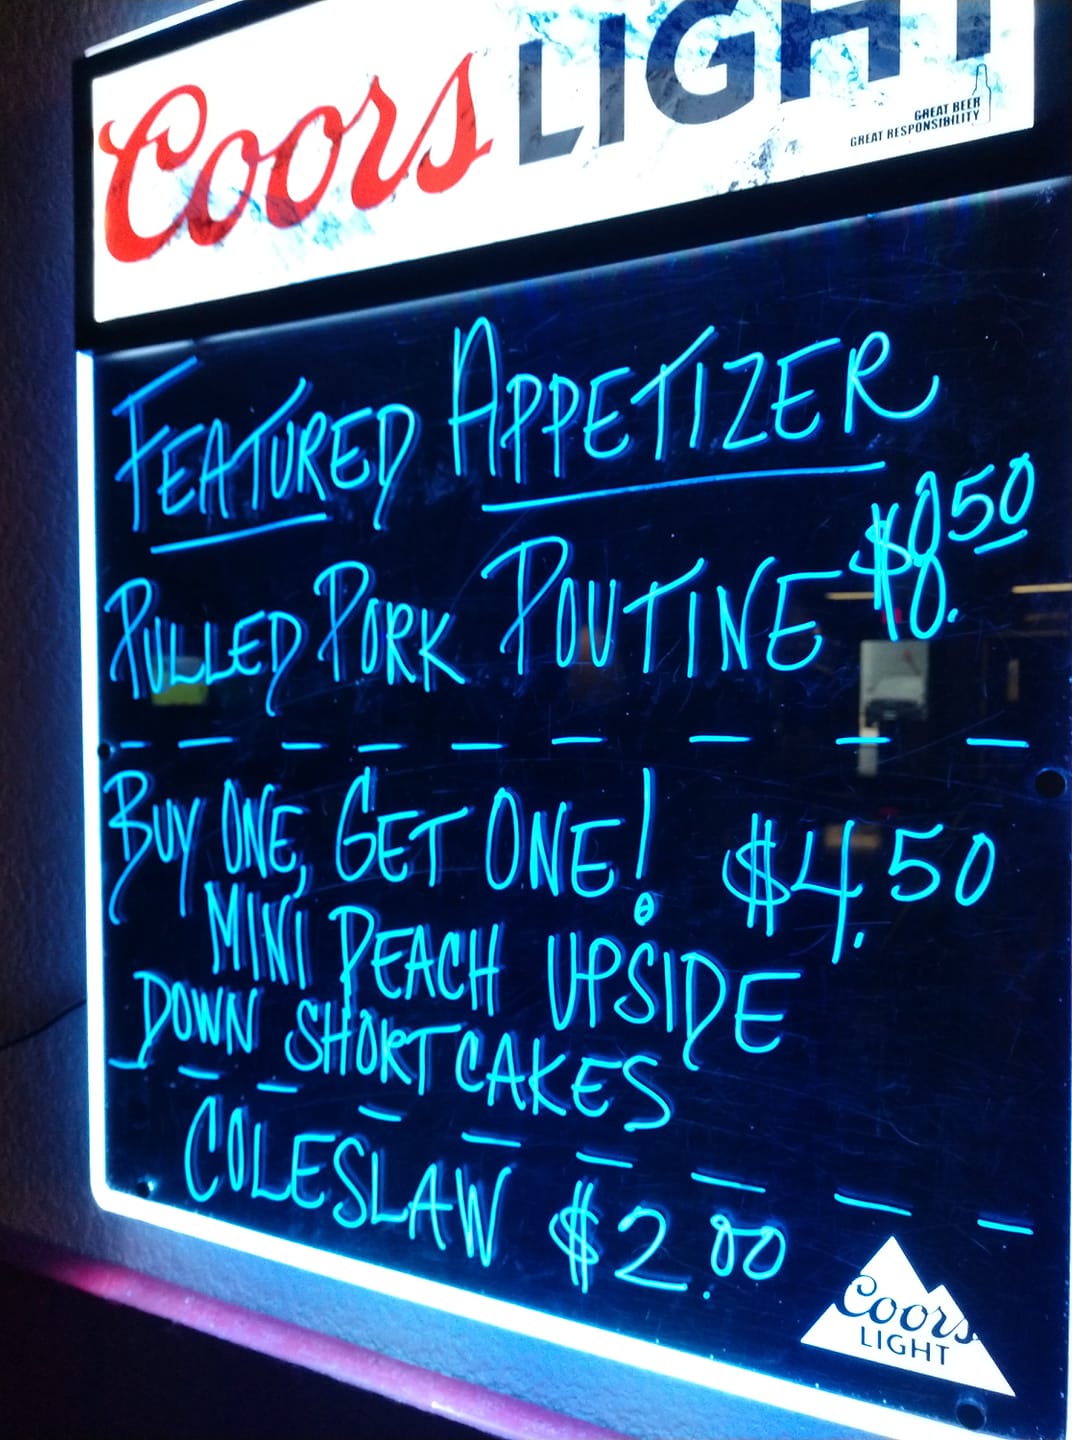 Coors LIGHT
GREAT BEER
GREAT RESPONSIBILITY
FEATURED APPETIZER
PULLED PORK POUTINE $8.50
BUY ONE, GET ONE! $4.50
MINI PEACH UPSIDE
DOWN SHORTCAKES
COLESLAW $2.00
Coors
LIGHT